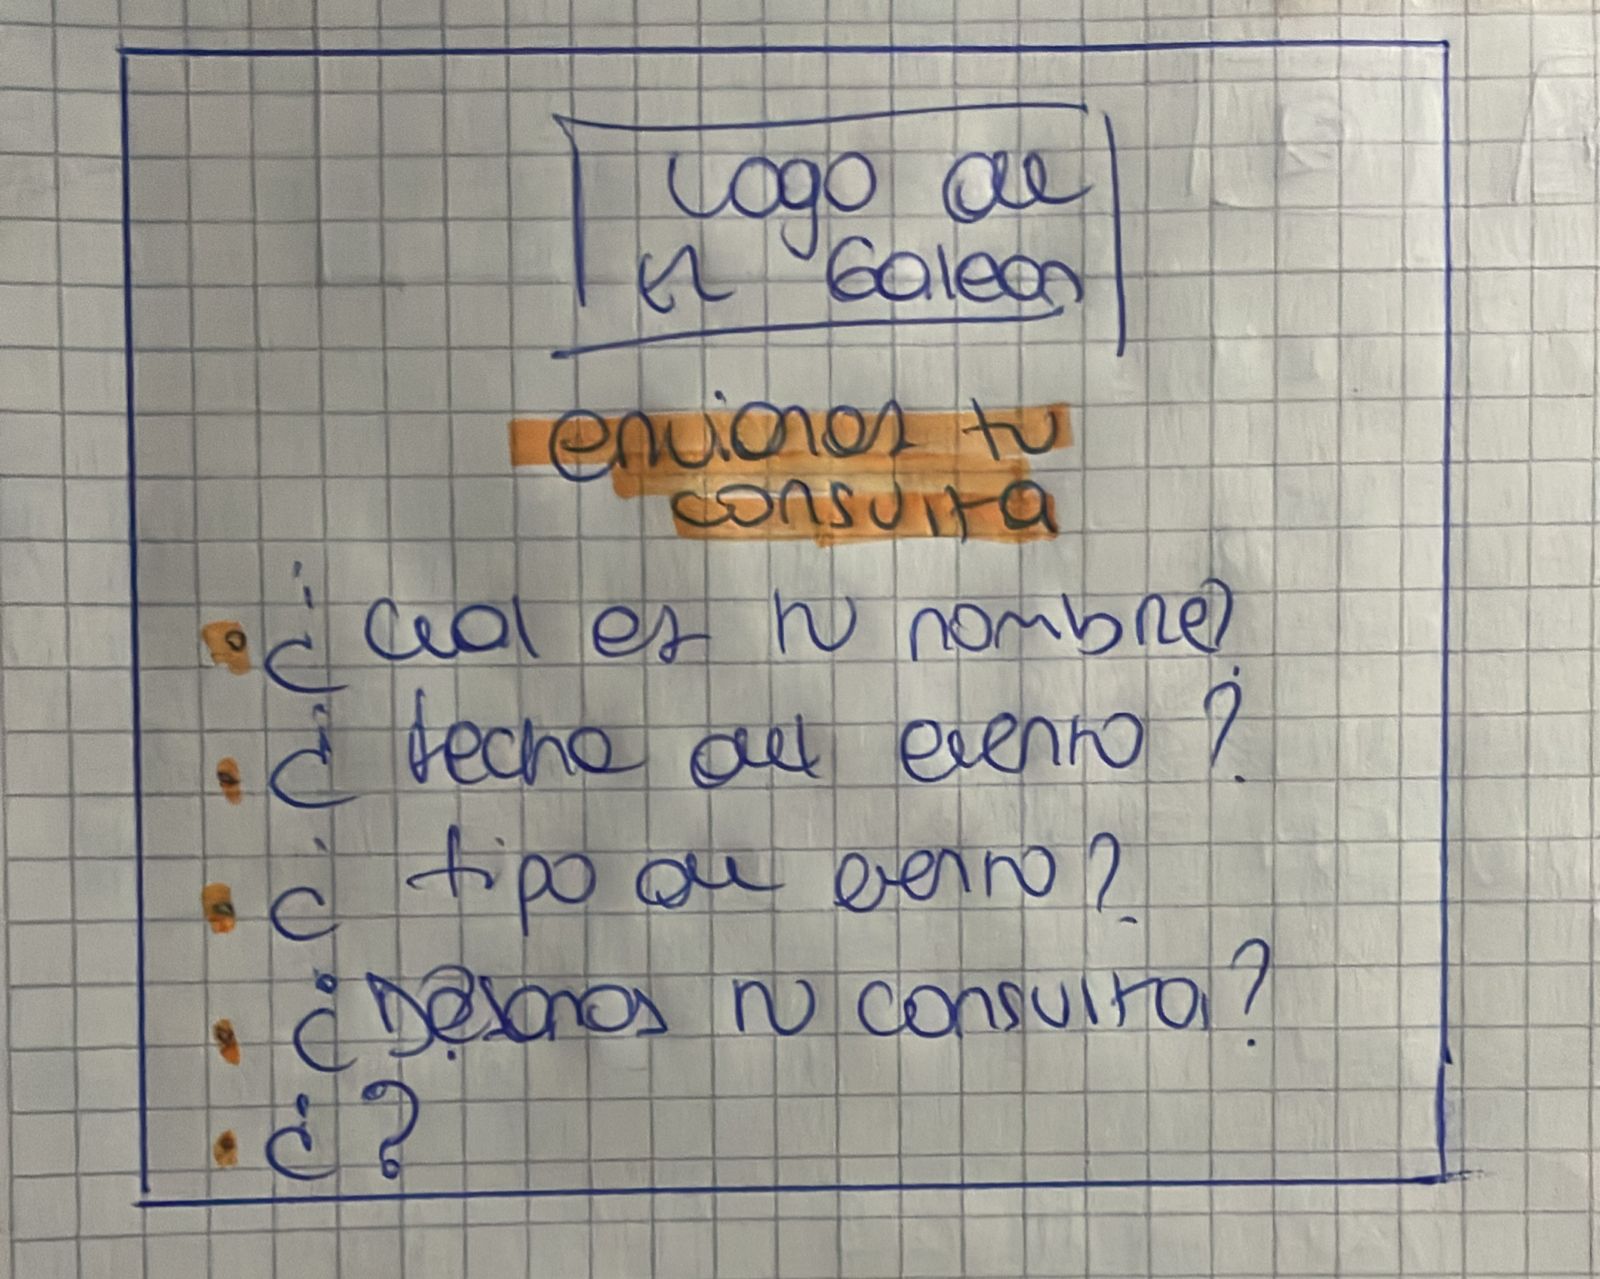 Logo de
El Galeon
envianos tu
consulta
¿Cual es tu nombre?
¿fecha del evento?
¿tipo de evento?
¿Dejanos tu consulta?
¿?